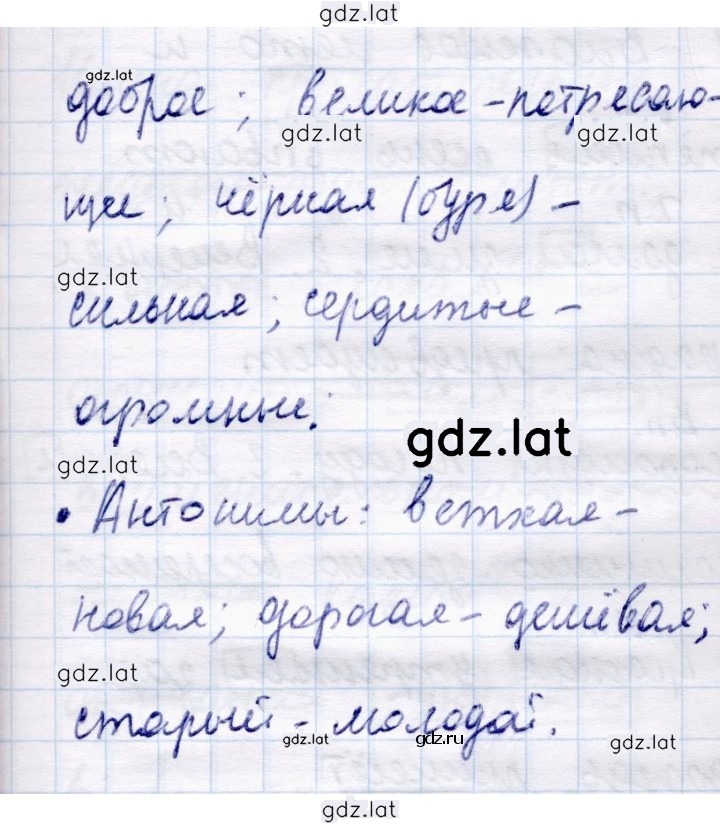 gdz.lat
gdz.lat
доброе; великое - потресаю-
gdz.lat gdz.lat
щее; чёрная (буря) -
gdz.lat
сильная; сердитые -
огромные;
gdz.lat
gdz.lat
• Антонимы: ветхая -
новая; дорогая - дешёвая;
gdz.lat
старый - молодой.
gdz.lat gdz.ru gdz.lat
gdz.lat